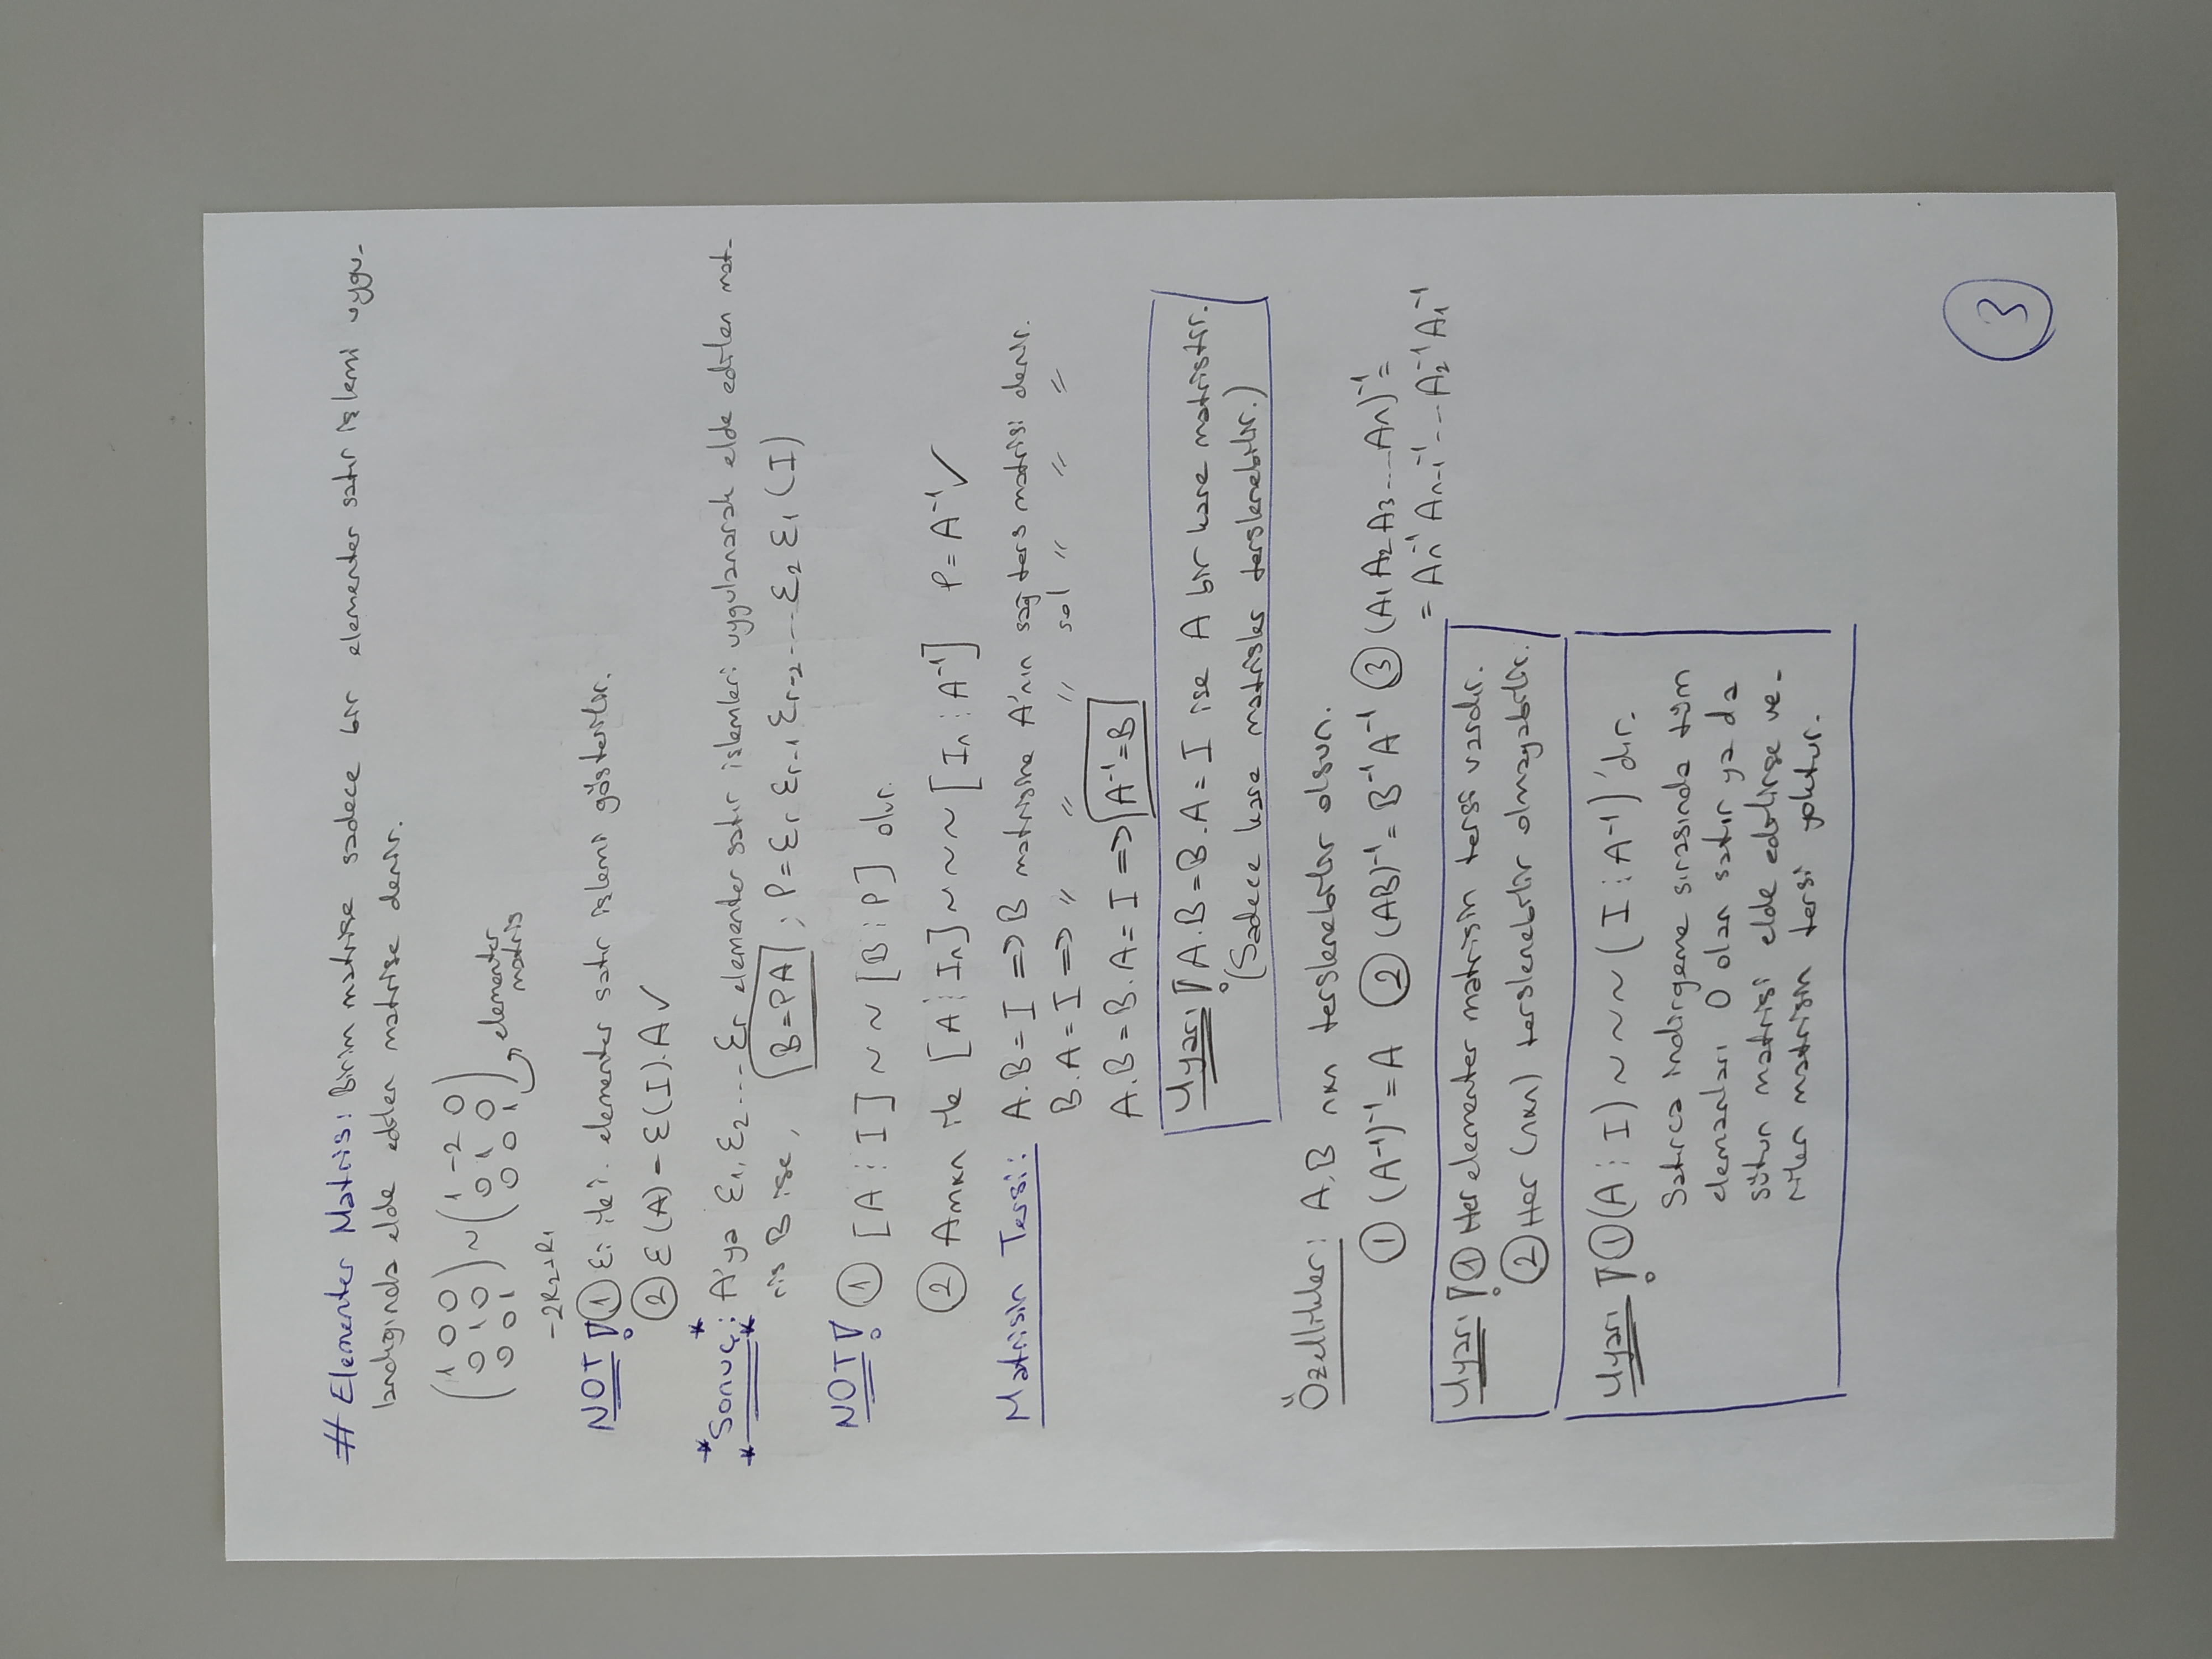 # Elementer Matris: Birim matrise sadece bir elementer satır işlemi uygu-
landığında elde edilen matrise denir.
(1 0 0) ~ (1 -2 0)
(0 1 0) (0 1 0) elementer
(0 0 1) (0 0 1) matris
-2R₂+R₁
NOT! ① εi ile i. elementer satır işlemi gösterilir.
② ε(A) = ε(I).A ✓
*Sonuç*: A'ya ε₁, ε₂ .... εr elementer satır işlemleri uygulanarak elde edilen mat-
ris B ise, B=PA ; P= εr εr-1 εr-2 .... ε₂ ε₁ (I)
NOT! ① [A ⋮ I] ~ ~ [B ⋮ P] olur.
② Amxn ile [A ⋮ In] ~ ~ ~ [In ⋮ A⁻¹] P= A⁻¹ ✓
Matrisin Tersi: A.B = I => B matrisine A'nın sağ ters matrisi denir.
B.A = I => " " " sol " " "
A.B = B.A = I => A⁻¹=B
Uyarı! A.B = B.A = I ise A bir kare matristir.
(Sadece kare matrisler terslenebilir.)
Özellikler: A,B nxn terslenebilir olsun.
① (A⁻¹)⁻¹ = A ② (AB)⁻¹ = B⁻¹A⁻¹ ③ (A₁ A₂ A₃ .... An)⁻¹ =
= An⁻¹ An-1⁻¹ .... A₂⁻¹ A₁⁻¹
Uyarı! ① Her elementer matrisin tersi vardır.
② Her (nxn) terslenebilir olmayabilir.
Uyarı! ① (A ⋮ I) ~ ~ ~ (I ⋮ A⁻¹)'dır.
Satırca indirgeme sırasında tüm
elemanları 0 olan satır ya da
sütun matrisi elde edilirse ve-
rilen matrisin tersi yoktur.
3